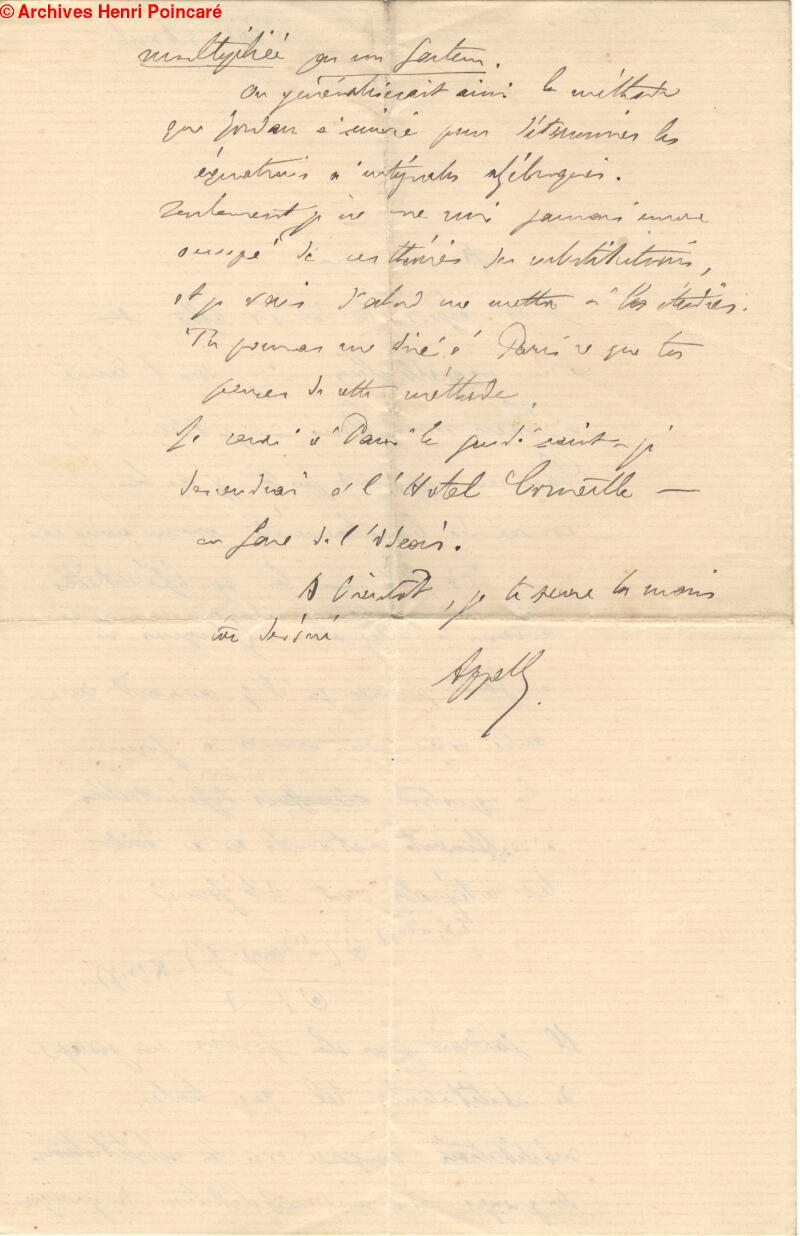 © Archives Henri Poincaré
multipliée par un facteur.
On généraliserait ainsi la méthode
que Jordan a suivie pour déterminer les
équations à intégrales algébriques.
Seulement je ne me suis jamais encore
occupé de ces théories des substitutions,
et je vais d'abord me mettre à les étudier.
Tu pourras me dire à Paris ce que tu
penses de cette méthode.
Je serai à Paris le jeudi saint - je
descendrai à l'Hotel Corneille —
en face de l'Odéon.
A bientôt, je te serre la main
Appell.